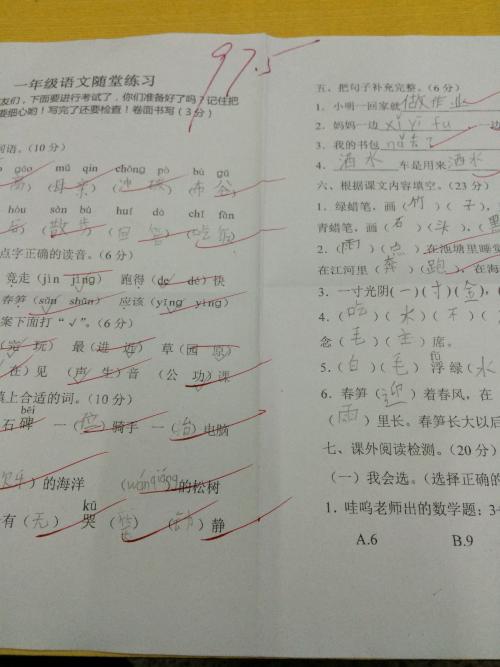 97.5
一年级语文随堂练习
友们，下面要进行考试了，你们准备好了吗？记住把
要细心哟！写完了还要检查！卷面书写(3分)
词语。(10分)
gāo mǔ qin chōng pò bù gǔ
母亲 冲破 布谷
hòu sàn bù huí dá chī fàn
后 散步 回答 吃饭
点字正确的读音。(6分)
竞走(jìn jìng) 跑得(de dé)快
春笋(sǔn shǔn) 应该(yīng yìng)
案下面打“√”。(6分)
(完 玩) 最(进 近) 草(园 原)
在)见 (声 生)音 (公 功)课
填上合适的词。(10分)
béi
石碑 一( )骑手 一(台)电脑
欢乐)的海洋 ( )的松树
kū
有(无) 哭( ) ( )静
五、把句子补充完整。(6分)
1. 小明一回家就做作业
2. 妈妈一边xǐ yī fu，一边
3. 我的书包
4. 洒水车是用来洒水
六、根据课文内容填空。(23分)
1. 绿蜡笔，画(竹)(子)，
青蜡笔，画(石)(头)，(黑
2. (雨)(点)在池塘里睡觉
在江河里(奔)(跑)，在海
3. 一寸光阴(一)(寸)(金)，
4. (吃)(水)(不)(
念(毛)(主)席。
5. (白)(毛)浮绿(水
6. 春笋(迎)着春风，在
(雨)里长。春笋长大以后
七、课外阅读检测。(20分)
(一)我会选。(选择正确的
1. 哇呜老师出的数学题：3
A.6 B.9